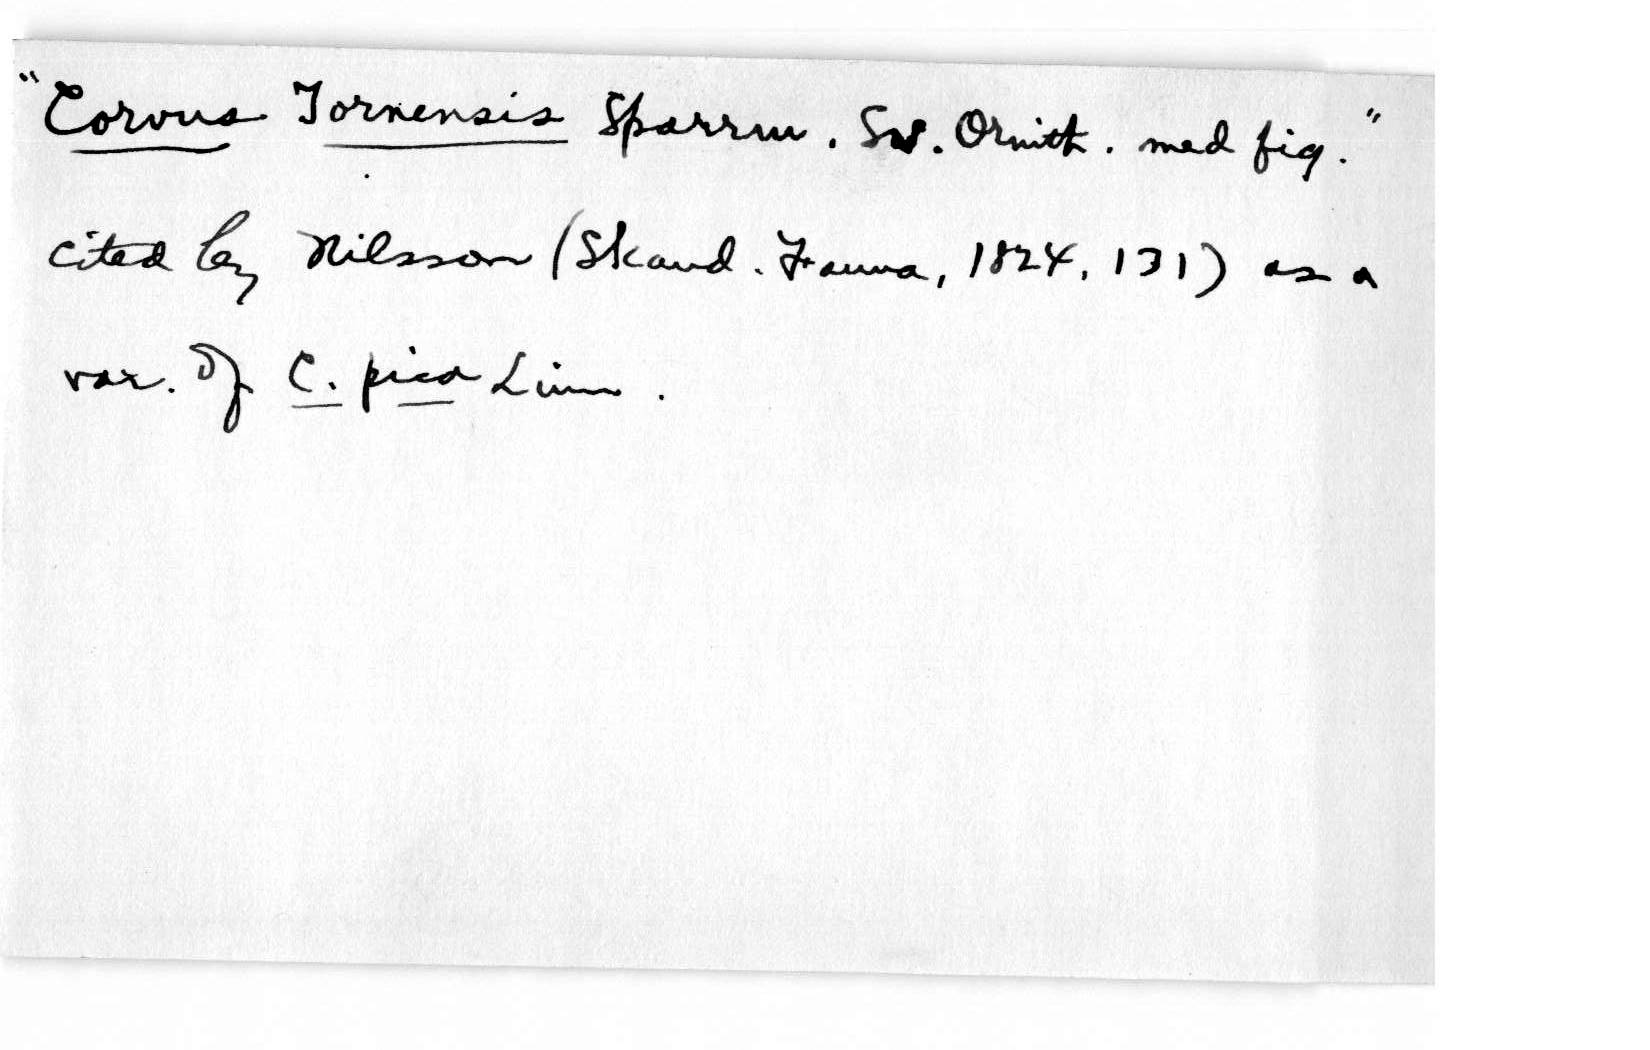 "Corvus Tornensis Sparrm. Sv. Ornith. med fig."
cited by Nilsson (Skand. Fauna, 1824, 131) as a
var. of C. pica Linn.